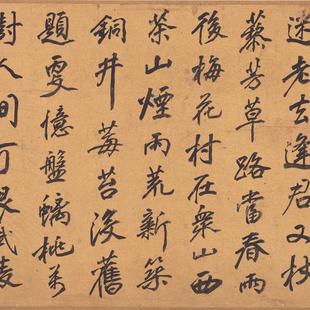 迷老去逢君又杖
藜芳草路當春雨
後梅花村在衆山西
茶山煙雨荒新築
銅井莓苔沒舊
題更憶盤螭桃萬
樹人間武陵